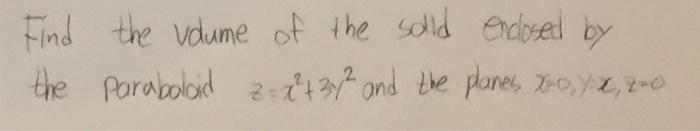 Find the volume of the solid enclosed by
the paraboloid z=x²+3y² and the planes x=0, y=x, z=0